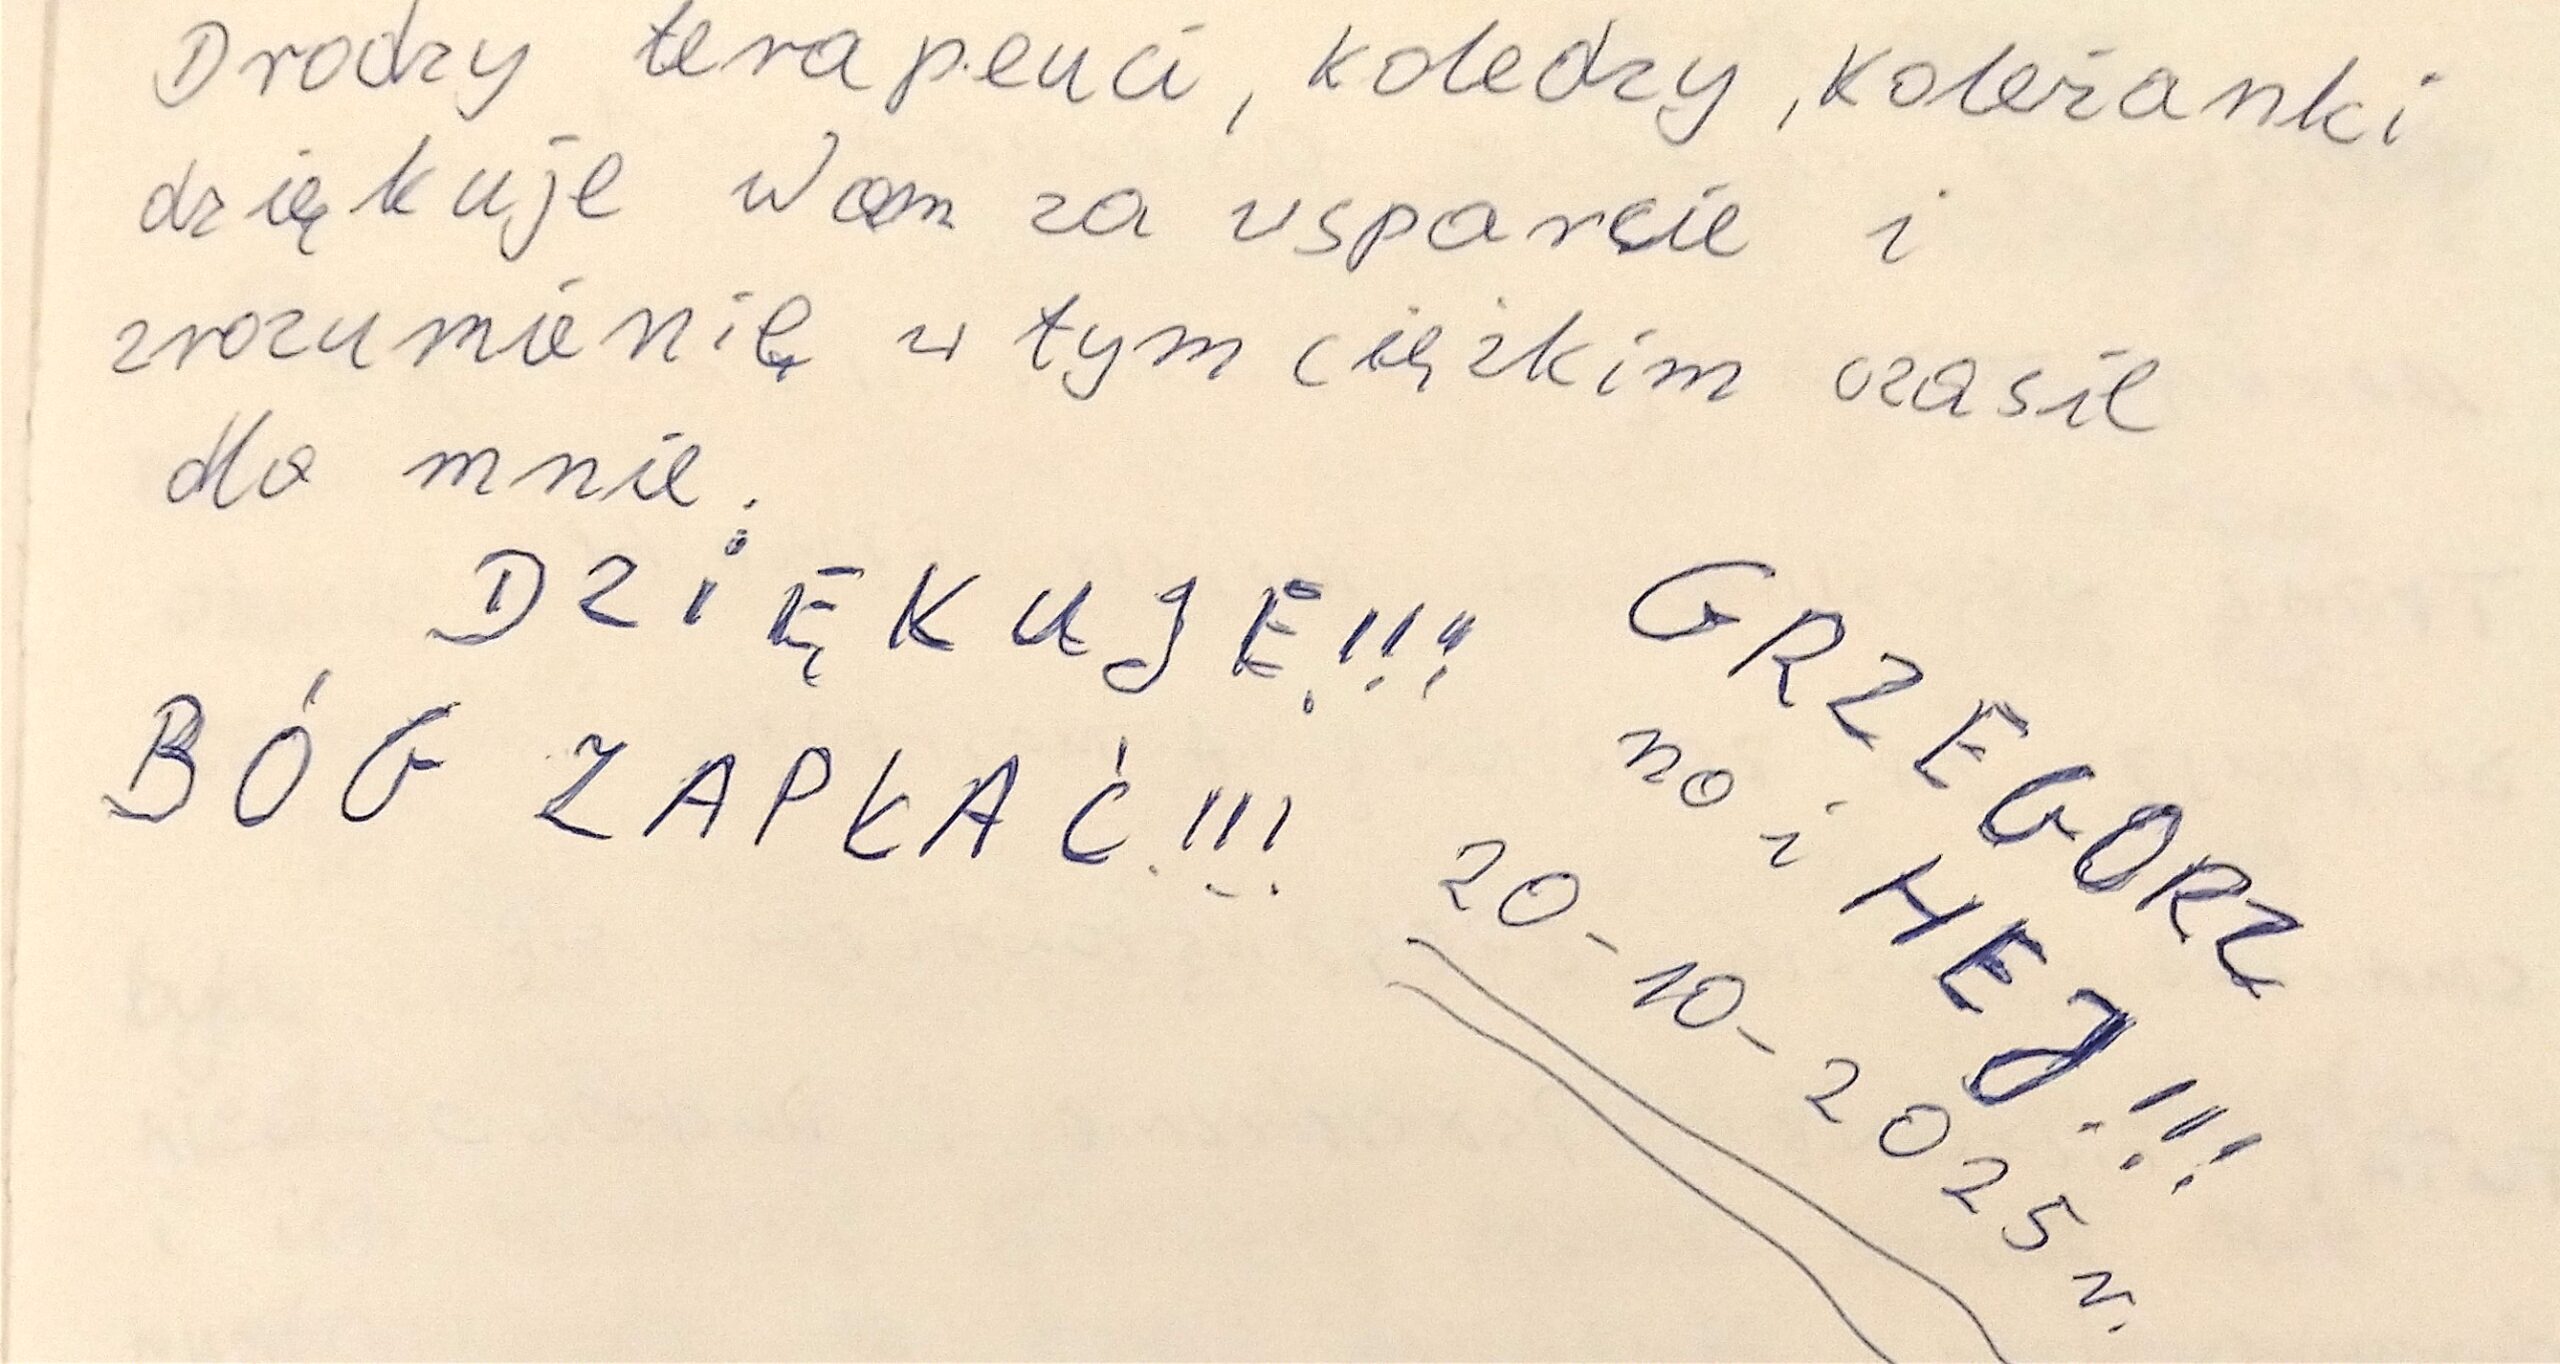 Drodzy terapeuci, koledzy, koleżanki
dziękuje Wam za wsparcie i
zrozumienię w tym ciężkim czasie
dla mnie.
DZiĘKUJE!!!!
BÓG ZAPŁAĆ!!!!
GRZEGORZ
no i HEJ!!!!
20-10-2025r.